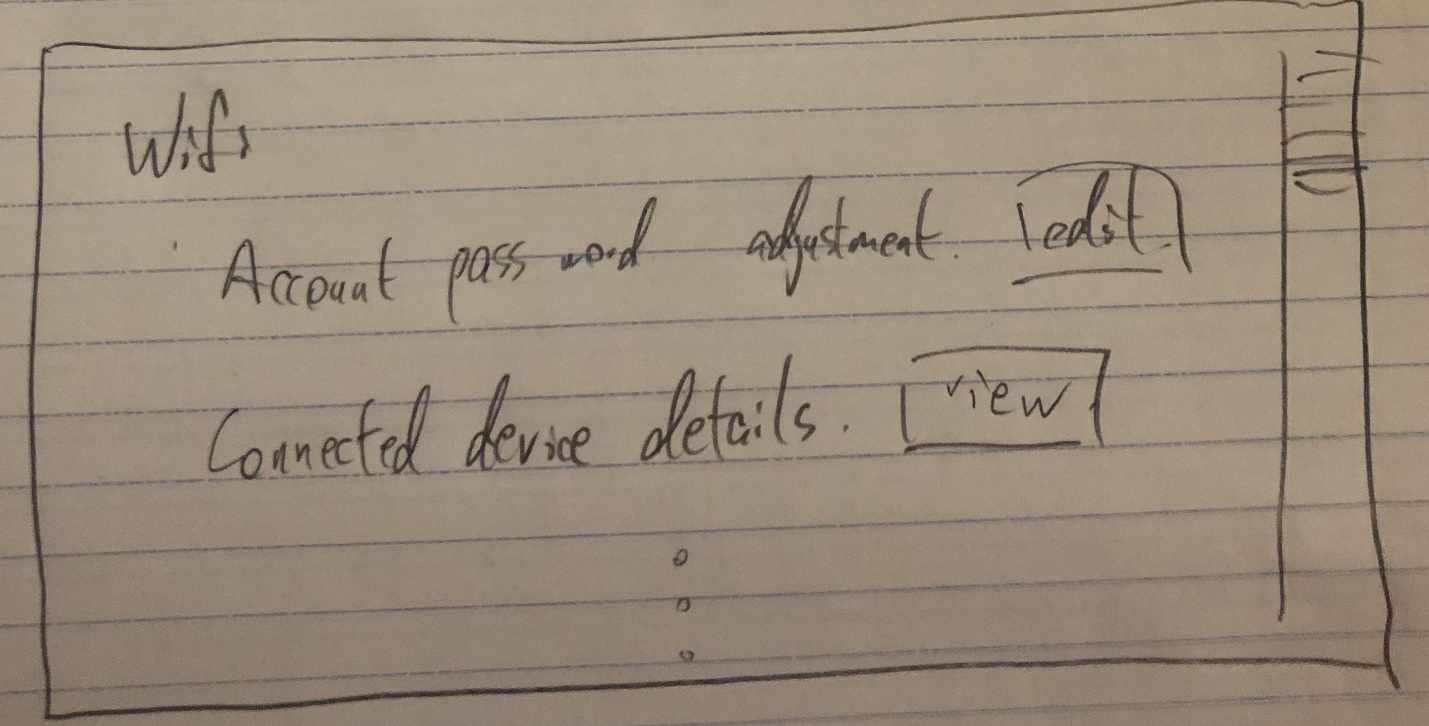 Wifi
Account pass word adjustment. edit
Connected device details. view